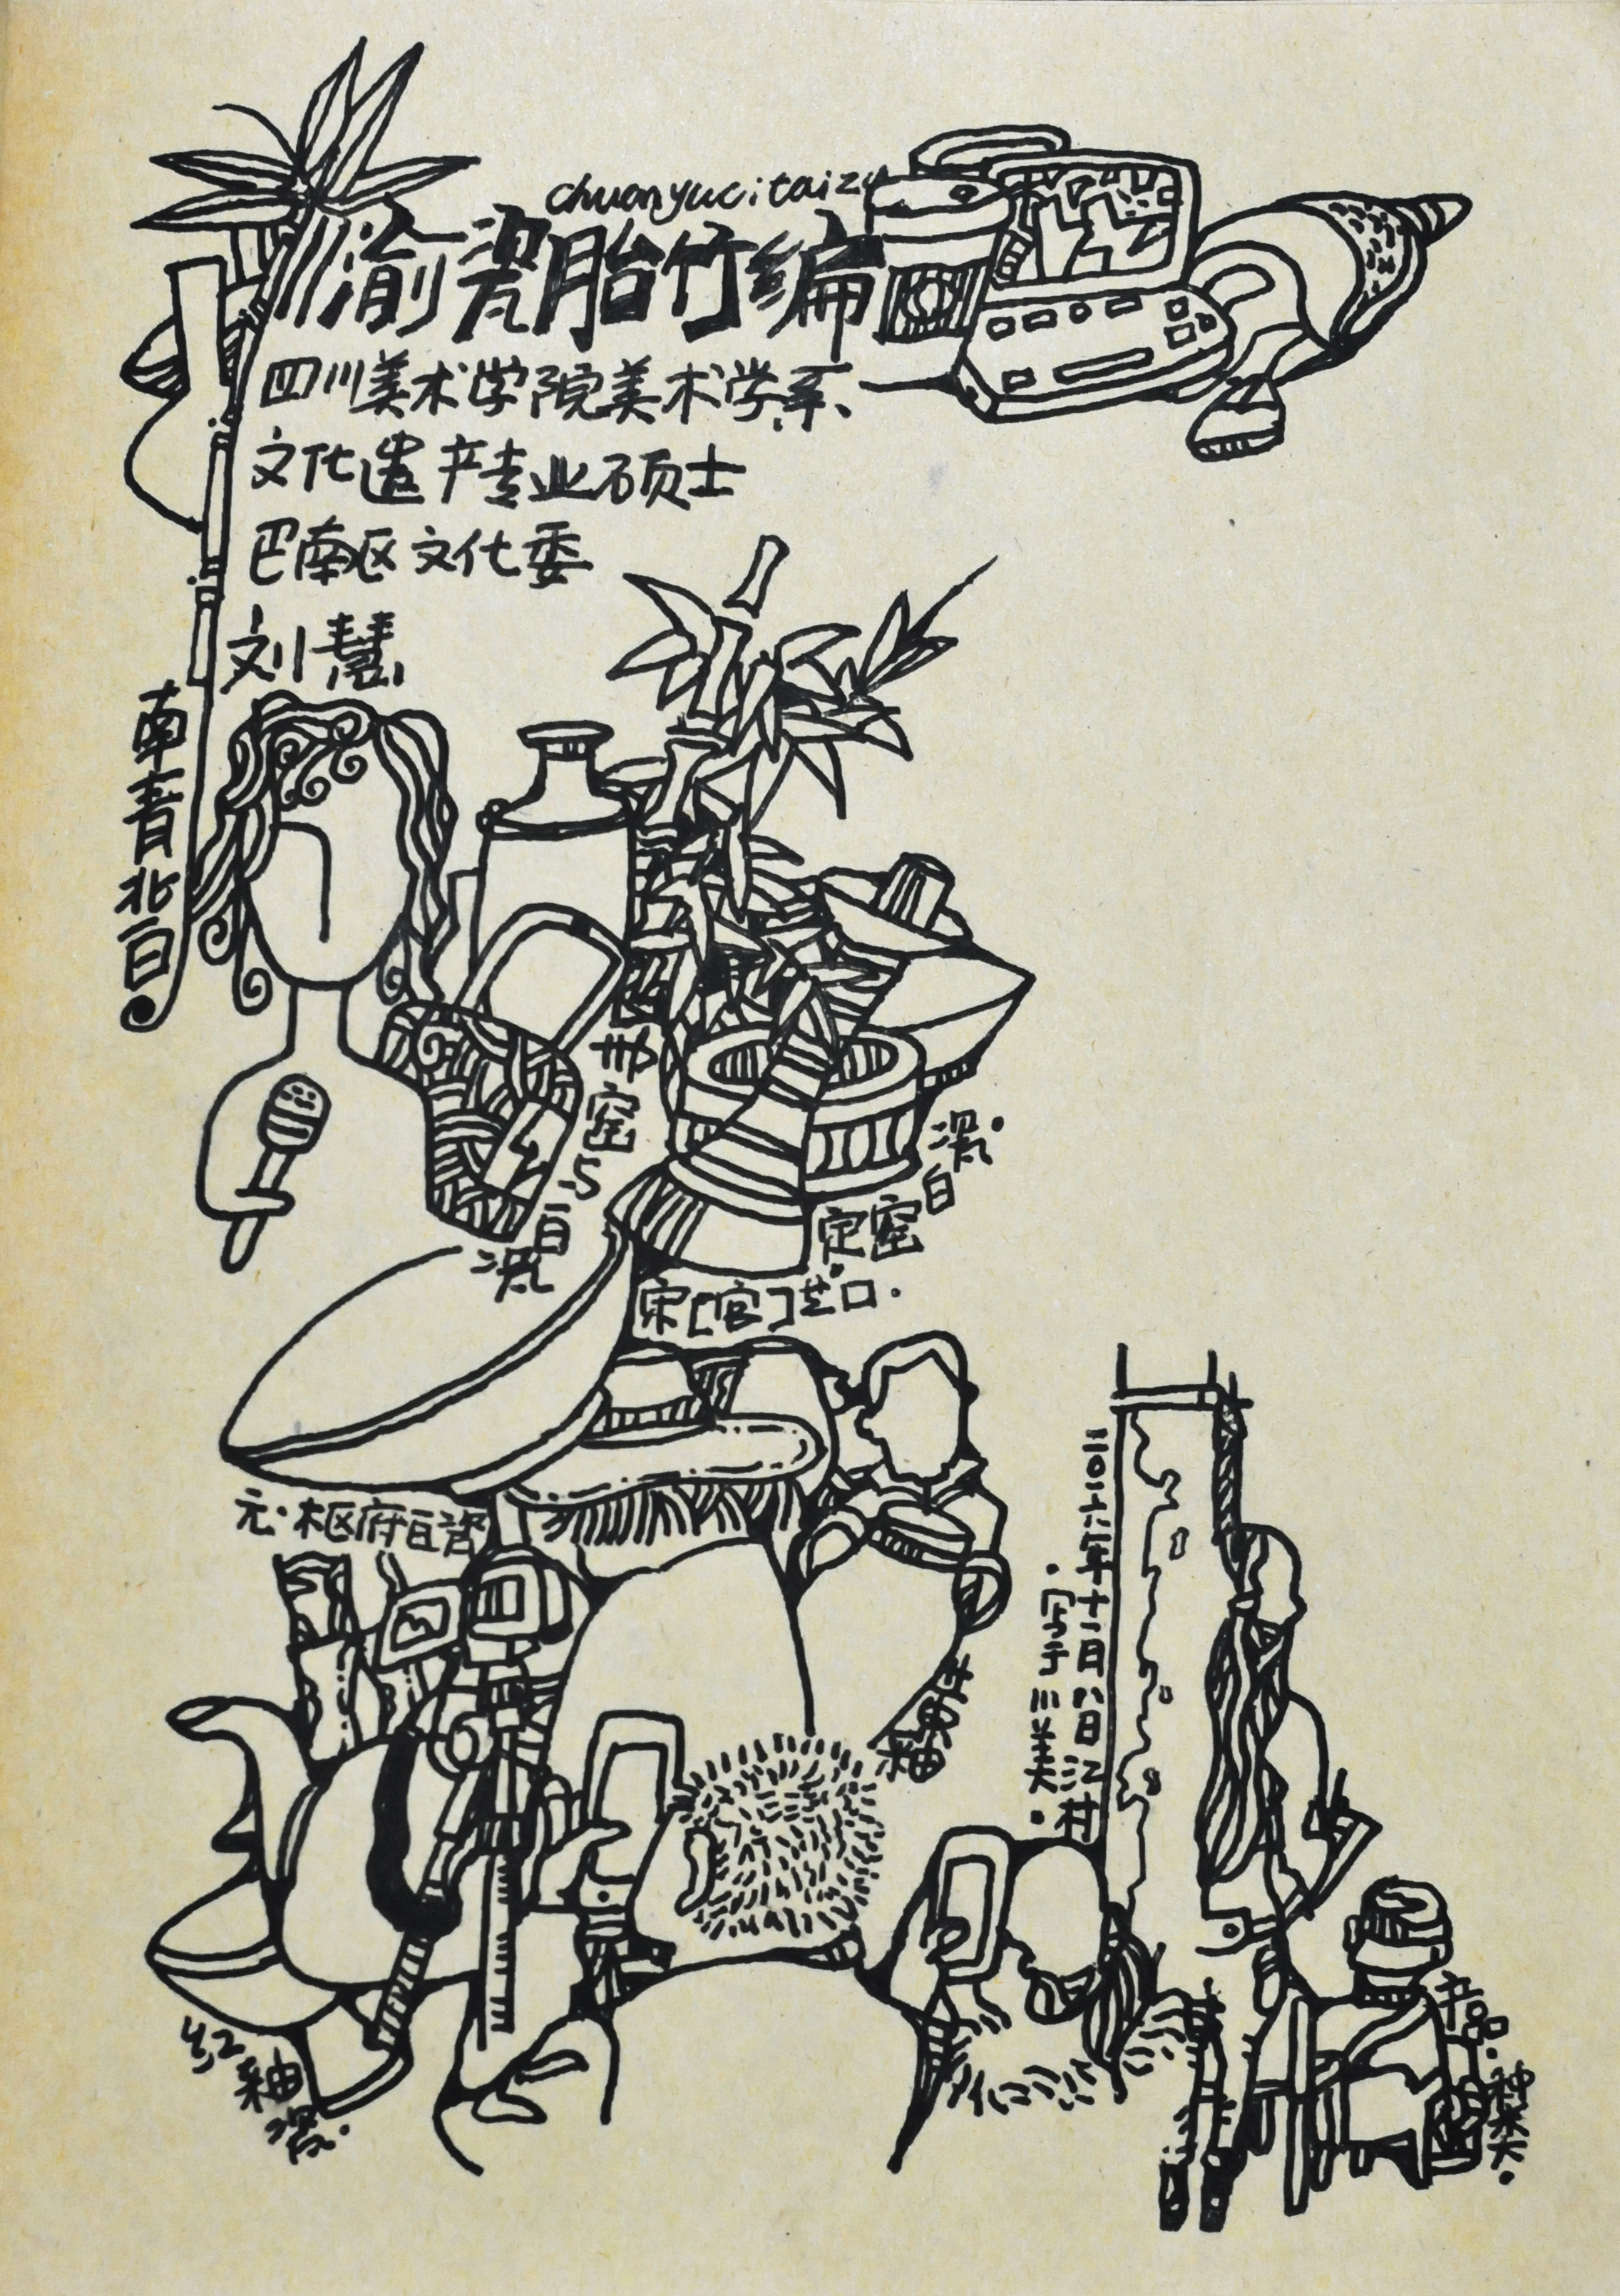 chuanyucitaizu
川渝瓷胎竹编
四川美术学院美术学系
文化遗产专业硕士
巴南区文化委
刘慧
南青北白
邢窑与白瓷
定窑白瓷
宋[官]芒口
元·枢府白瓷
黄釉
红釉瓷
二〇一六年十一月八日江村
·写于川美·
产品·种类·